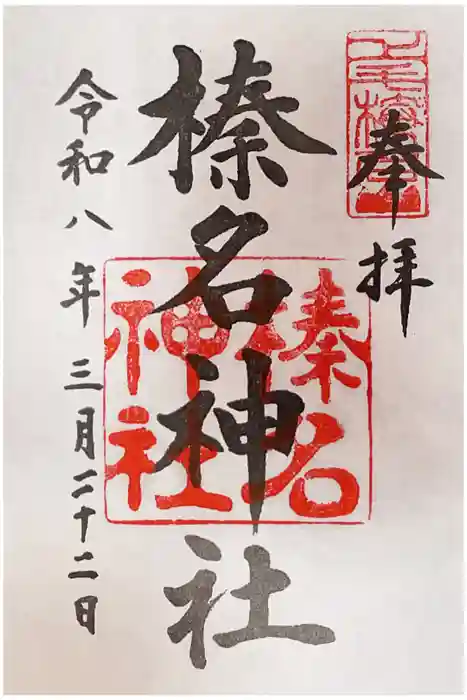 奉拝
榛名神社
榛名
神社
令和八年 三月二十二日